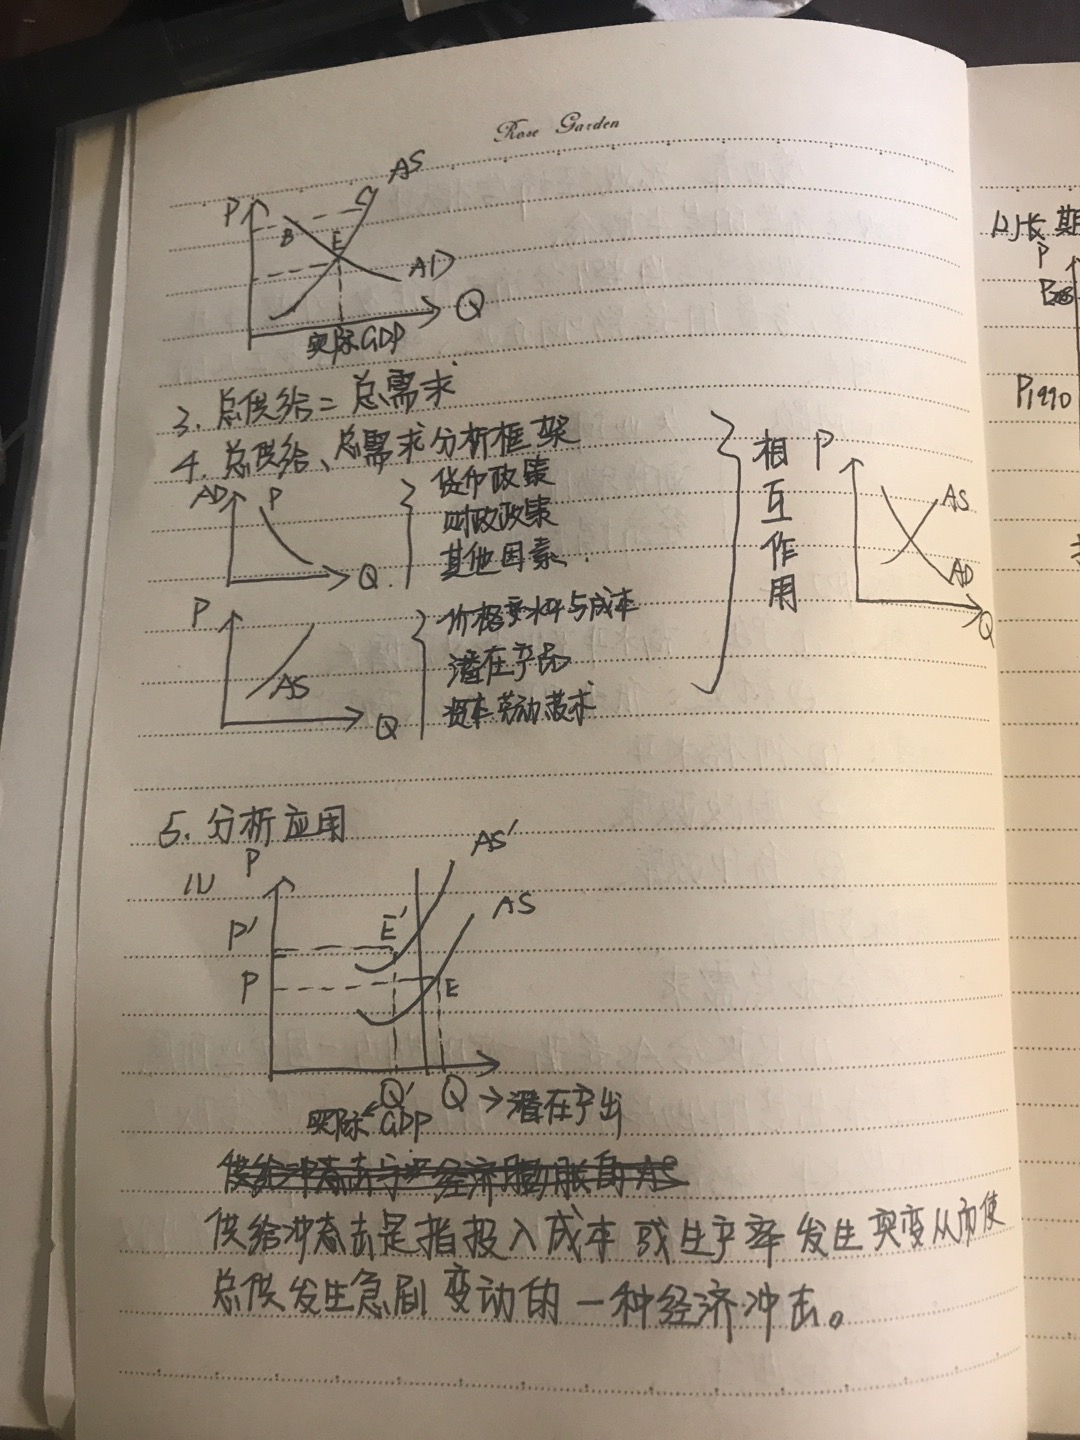 Rose Garden
P
AS
C
B
E
AD
Q
实际GDP
3. 总供给=总需求
4. 总供给、总需求分析框架
AD P
Q
货币政策
财政政策
其他因素.
P
AS
Q
价格水平与成本
潜在产品
资本劳动技术
相互作用
P
AS
AD
Q
5. 分析应用
(1)
P
AS'
AS
P'
E'
P
E
Q'
Q → 潜在产出
实际 GDP
供给冲击是指投入成本或生产率发生突变从而使
总供发生急剧变动的一种经济冲击。
长期
P
P1990